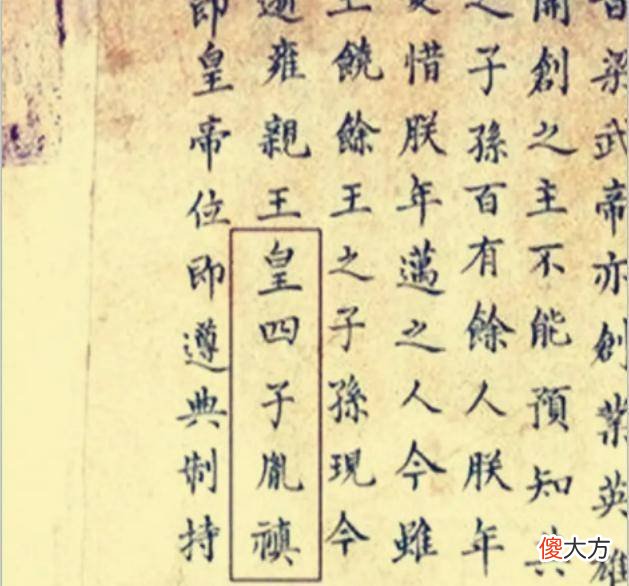 昔梁武帝亦創業英雄
開創之主不能預知其
之子孫百有餘人朕年
惜朕年邁之人今雖
王饒餘王之子孫現今
雍親王皇四子胤禛
即皇帝位即遵典制持
傻大方